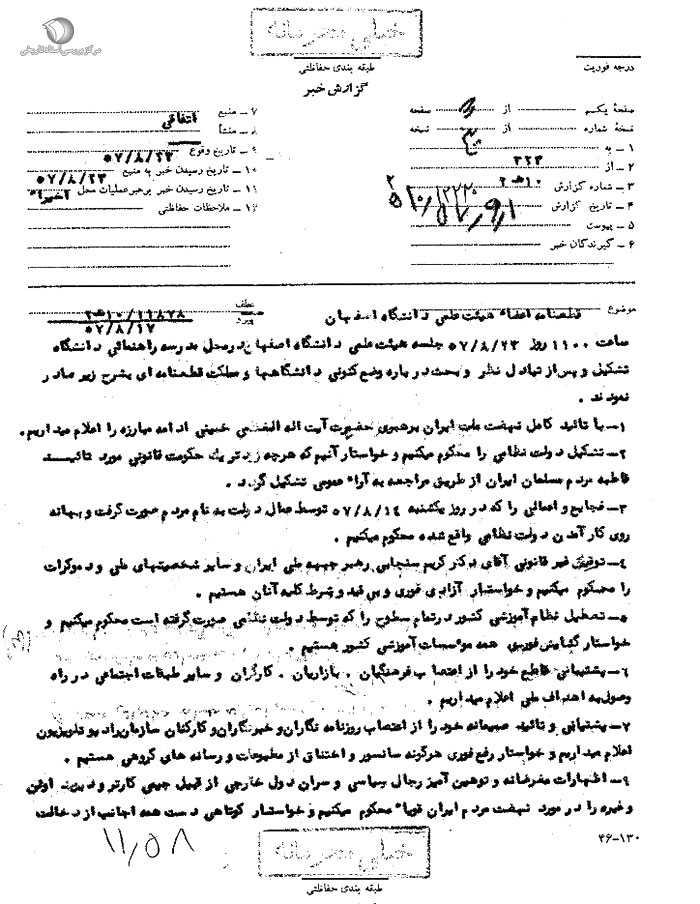 خیلی محرمانه
طبقه بندی حفاظتی
گزارش خبر
درجه فوریت
مرکز بررسی اسناد تاریخی
صفحهٔ یکم از صفحه
نسخهٔ شماره از نسخه
۱ ـ به
۲ ـ از ۳۲۳
۳ ـ شماره گزارش
۴ ـ تاریخ گزارش
۵ ـ پیوست
۶ ـ گیرندگان خبر
۷ ـ منبع اتفاقی
۸ ـ منشأ
۹ ـ تاریخ وقوع ۵۷/۸/۲۳
۱۰ ـ تاریخ رسیدن خبر به منبع ۵۷/۸/۲۳
۱۱ ـ تاریخ رسیدن خبر برهبر عملیات محل اخیرا"
۱۲ ـ ملاحظات حفاظتی
موضوع قطعنامه اعضاء هیئت علمی دانشگاه اصفهان
عطف ۲ هـ۱۰/۱۱۸۷۸
۵۷/۸/۱۷
ساعت ۱۱۰۰ روز ۵۷/۸/۲۳ جلسه هیئت علمی دانشگاه اصفهان در محل مدرسه راهنمائی دانشگاه
تشکیل و پس از تبادل نظر و بحث در باره وضع کنونی دانشگاهها و مملکت قطعنامه ای بشرح زیر صادر
نمودند .
۱ـ با تائید کامل نهضت ملت ایران برهبری حضرت آیت اله العظمی خمینی ادامه مبارزه را اعلام میداریم .
۲ـ تشکیل دولت نظامی را محکوم میکنیم و خواستار آنیم که هرچه زودتر یک حکومت قانونی مورد تائیسد
قاطبه مردم مسلمان ایران از طریق مراجعه به آراء عمومی تشکیل گردد .
۳ـ فجایع و اعمالی را که در روز یکشنبه ۵۷/۸/۱۴ توسط عمال دولت به نام مردم صورت گرفت و بهانه
روی کار آمدن دولت نظامی واقع شده محکوم میکنیم .
۴ـ توقیف غیر قانونی آقای دکتر کریم سنجابی رهبر جبهه ملی ایران و سایر شخصیتهای ملی و دموکرات
را محکوم میکنیم و خواستار آزادی فوری و بی قید و شرط کلیه آنان هستیم .
۵ـ تعطیل نظام آموزشی کشور در تمام سطوح را که توسط دولت نظامی صورت گرفته است محکوم میکنیم و
خواستار گشایش فوری همه موسسات آموزشی کشور هستیم .
۶ـ پشتیبانی قاطع خود را از اعتصاب فرهنگیان . بازاریان . کارگران و سایر طبقات اجتماعی در راه
وصول به اهداف ملی اعلام میداریم .
۷ـ پشتیبانی و تائید صمیمانه خود را از اعتصاب روزنامه نگاران و خبرنگاران و کارکنان سازمان رادیو تلویزیون
اعلام میداریم و خواستار رفع فوری هرگونه سانسور و اختناق از مطبوعات و رسانه های گروهی هستیم .
۹ـ اظهارات مغرضانه و توهین آمیز رجال سیاسی و سران دول خارجی از قبیل جیمی کارتر و دیوید اوئن
و غیره را در مورد نهضت مردم ایران قویا" محکوم میکنیم و خواستار کوتاهی دست همه اجانب از دخالت
۴۶-۱۳۰
۱۱/۵۸
خیلی محرمانه
طبقه بندی حفاظتی